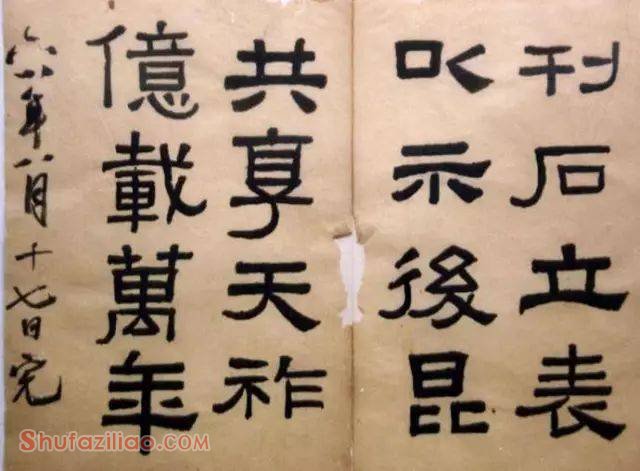 刊石立表
以示後昆
共享天祚
億載萬年
六八年八月十七日完
Shufaziliao.COM